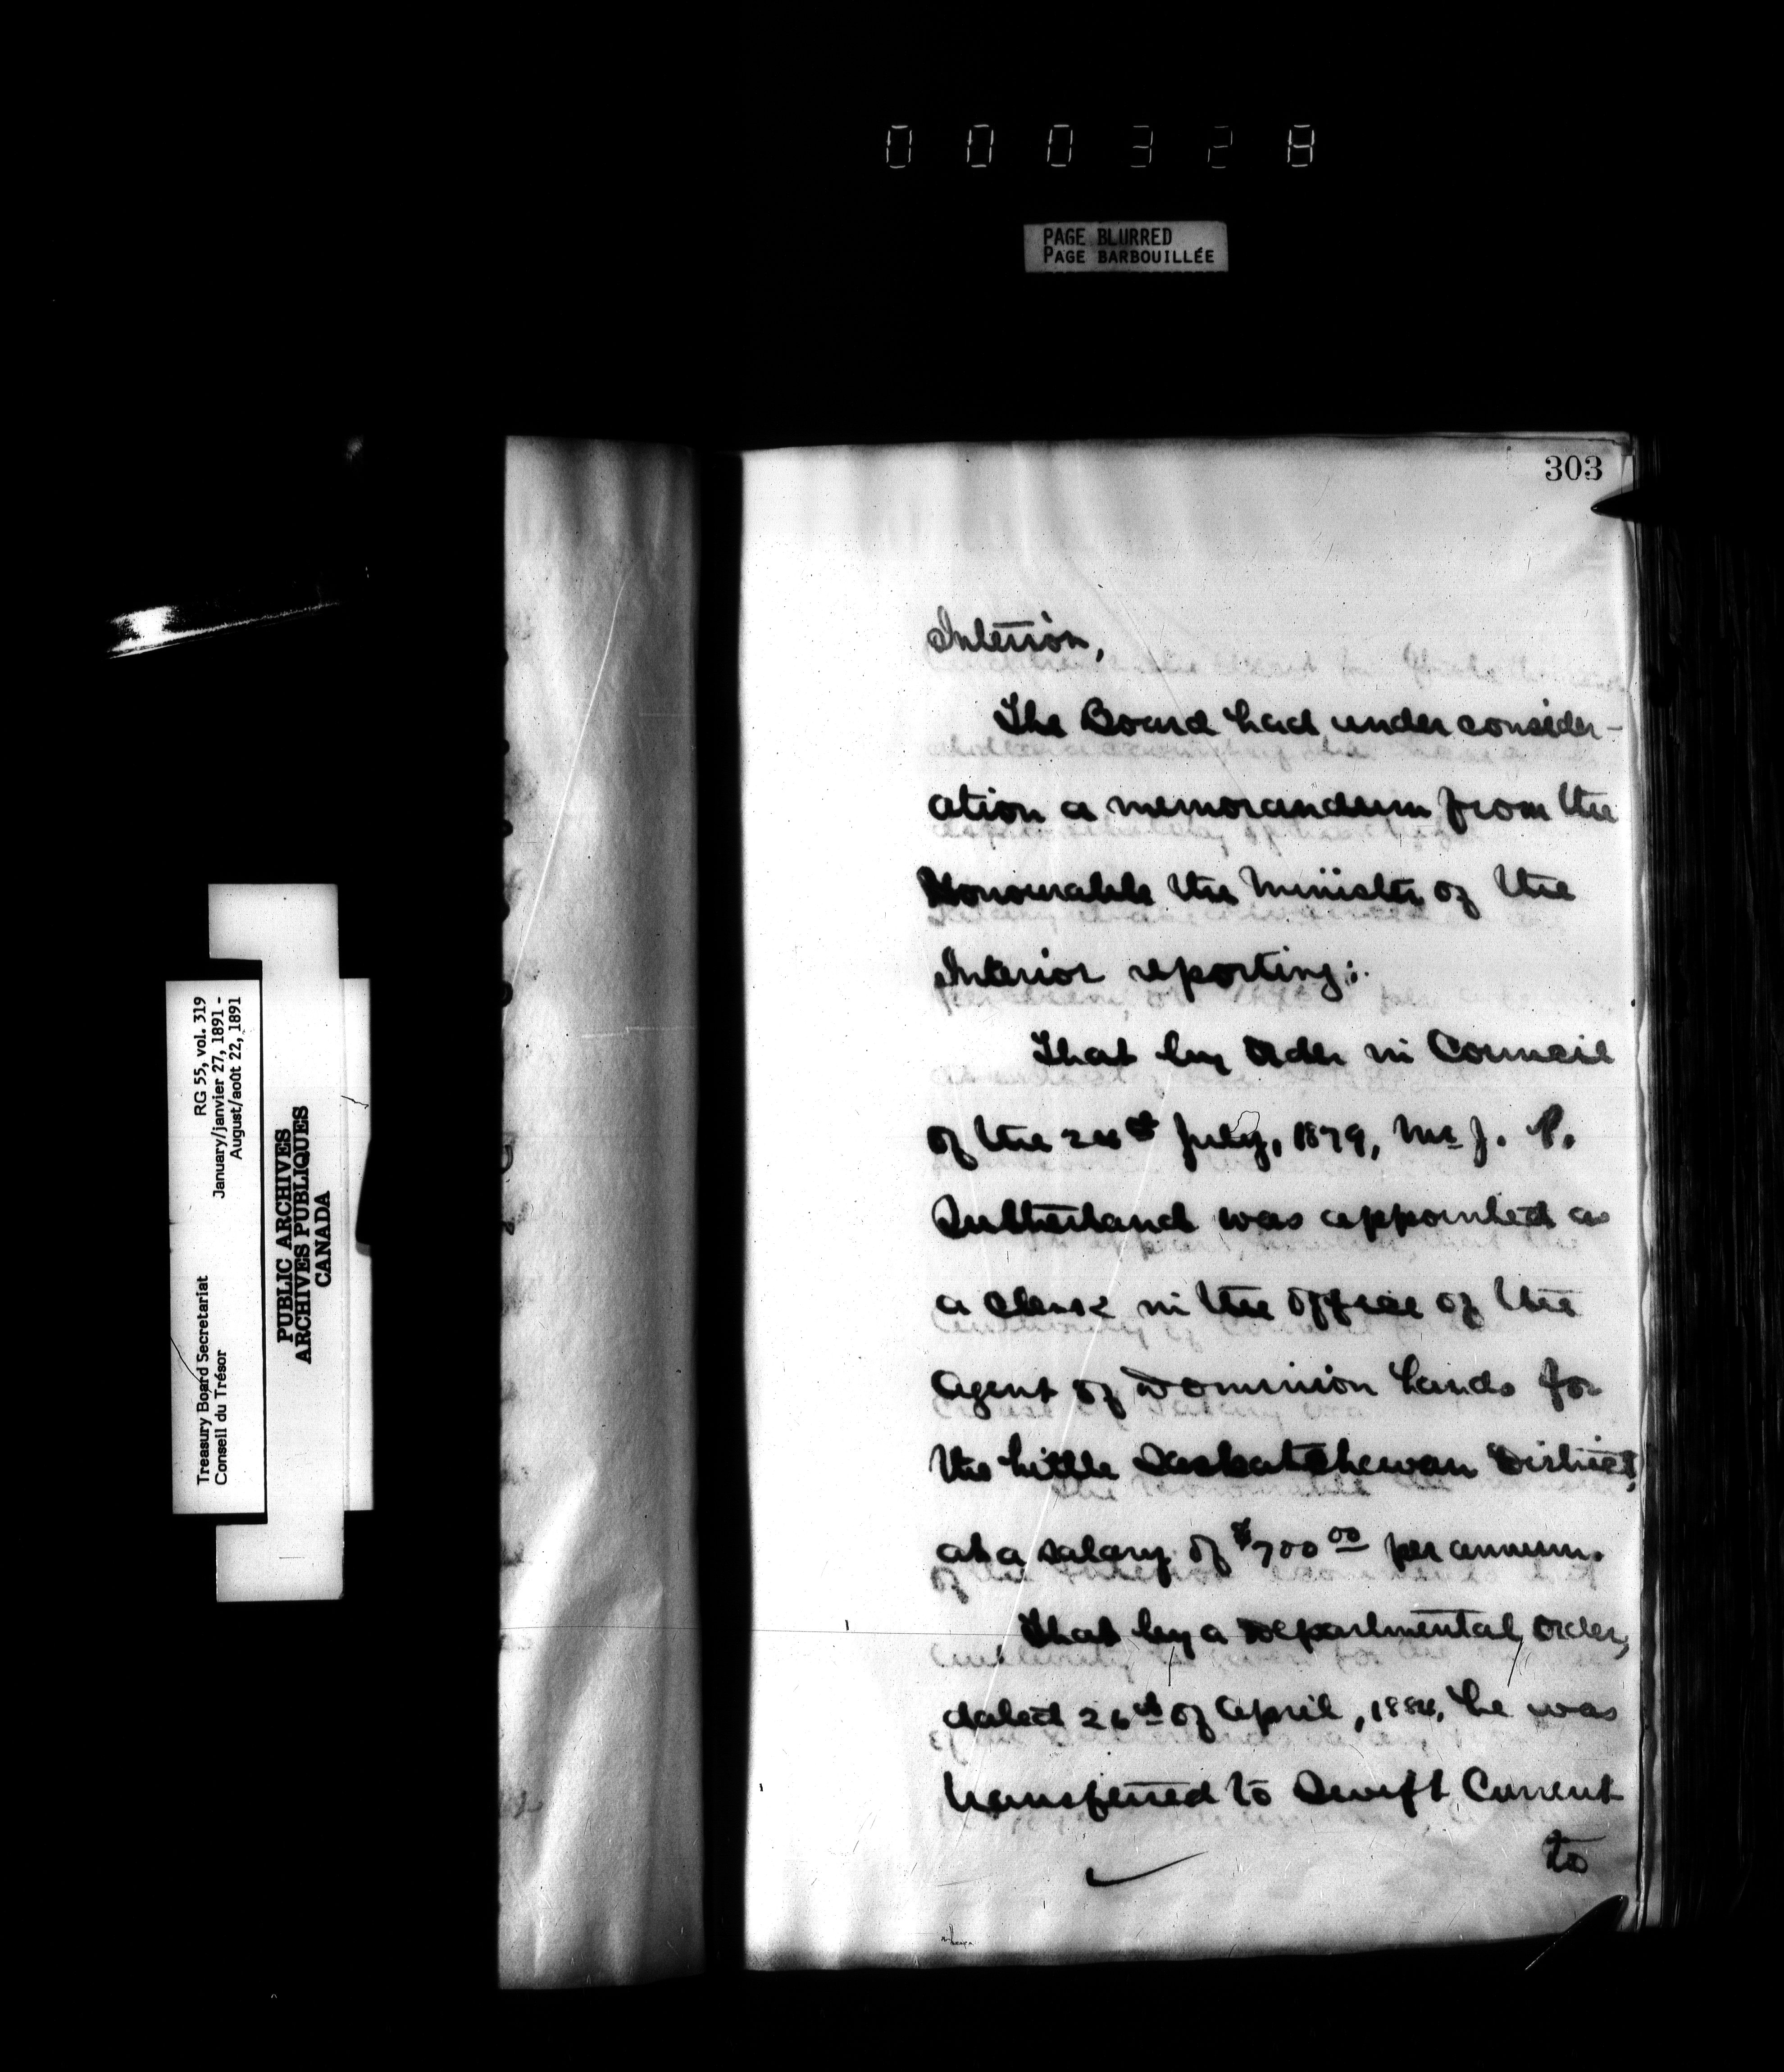 000328
PAGE BLURRED
PAGE BARBOUILLÉE
303
Interior,
The Board had under consider-
ation a memorandum from the
Honourable the Minister of the
Interior reporting:
That by Order in Council
of the 24th July, 1879, Mr J. P.
Sutherland was appointed as
a Clerk in the Office of the
Agent of Dominion Lands for
the Little Saskatchewan District,
at a salary of $700 00 per annum.
That by a Departmental Order,
dated 26th of April, 1884, he was
transferred to Swift Current
to
Treasury Board Secretariat
Conseil du Trésor
RG 55, vol. 319
January/janvier 27, 1891 -
August/août 22, 1891
PUBLIC ARCHIVES
ARCHIVES PUBLIQUES
CANADA